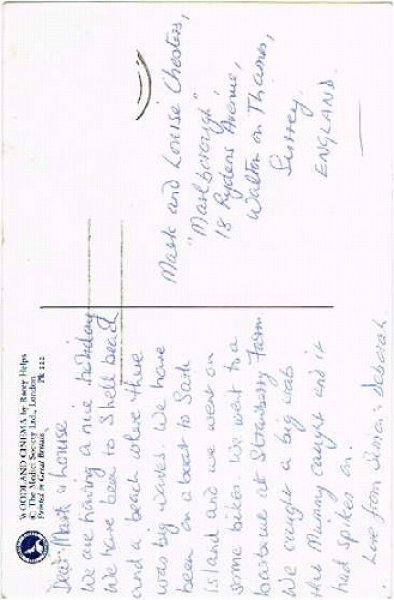 WOODLAND CINEMA by Racey Helps
© The Medici Society Ltd., London
Printed in Great Britain PK 222
Dear Mark & Louise
We are having a nice holiday
We have been to Shell beach
and a beach where there
was big waves. We have
been on a boat to Sark
Island and we went on
some bikes. We went to a
barbecue at Strawberry Farm
We caught a big crab
this Mummy caught and it
had spikes on.
Love from Simon & Deborah.
Mark and Louise Chesters,
"Marlborough",
18 Rydens Avenue,
Walton on Thames,
Surrey.
ENGLAND.